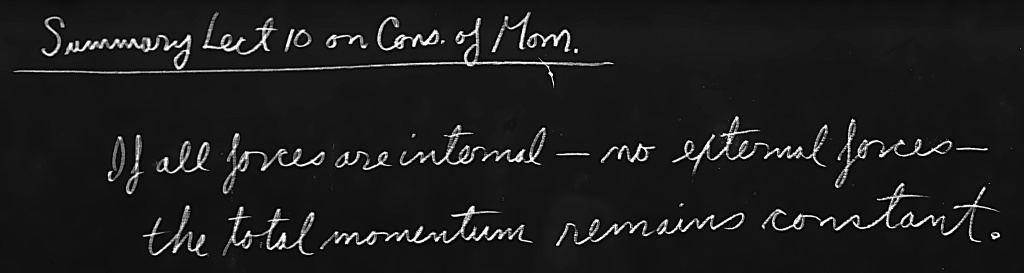 Summary Lect 10 on Cons. of Mom.
If all forces are internal — no external forces —
the total momentum remains constant.